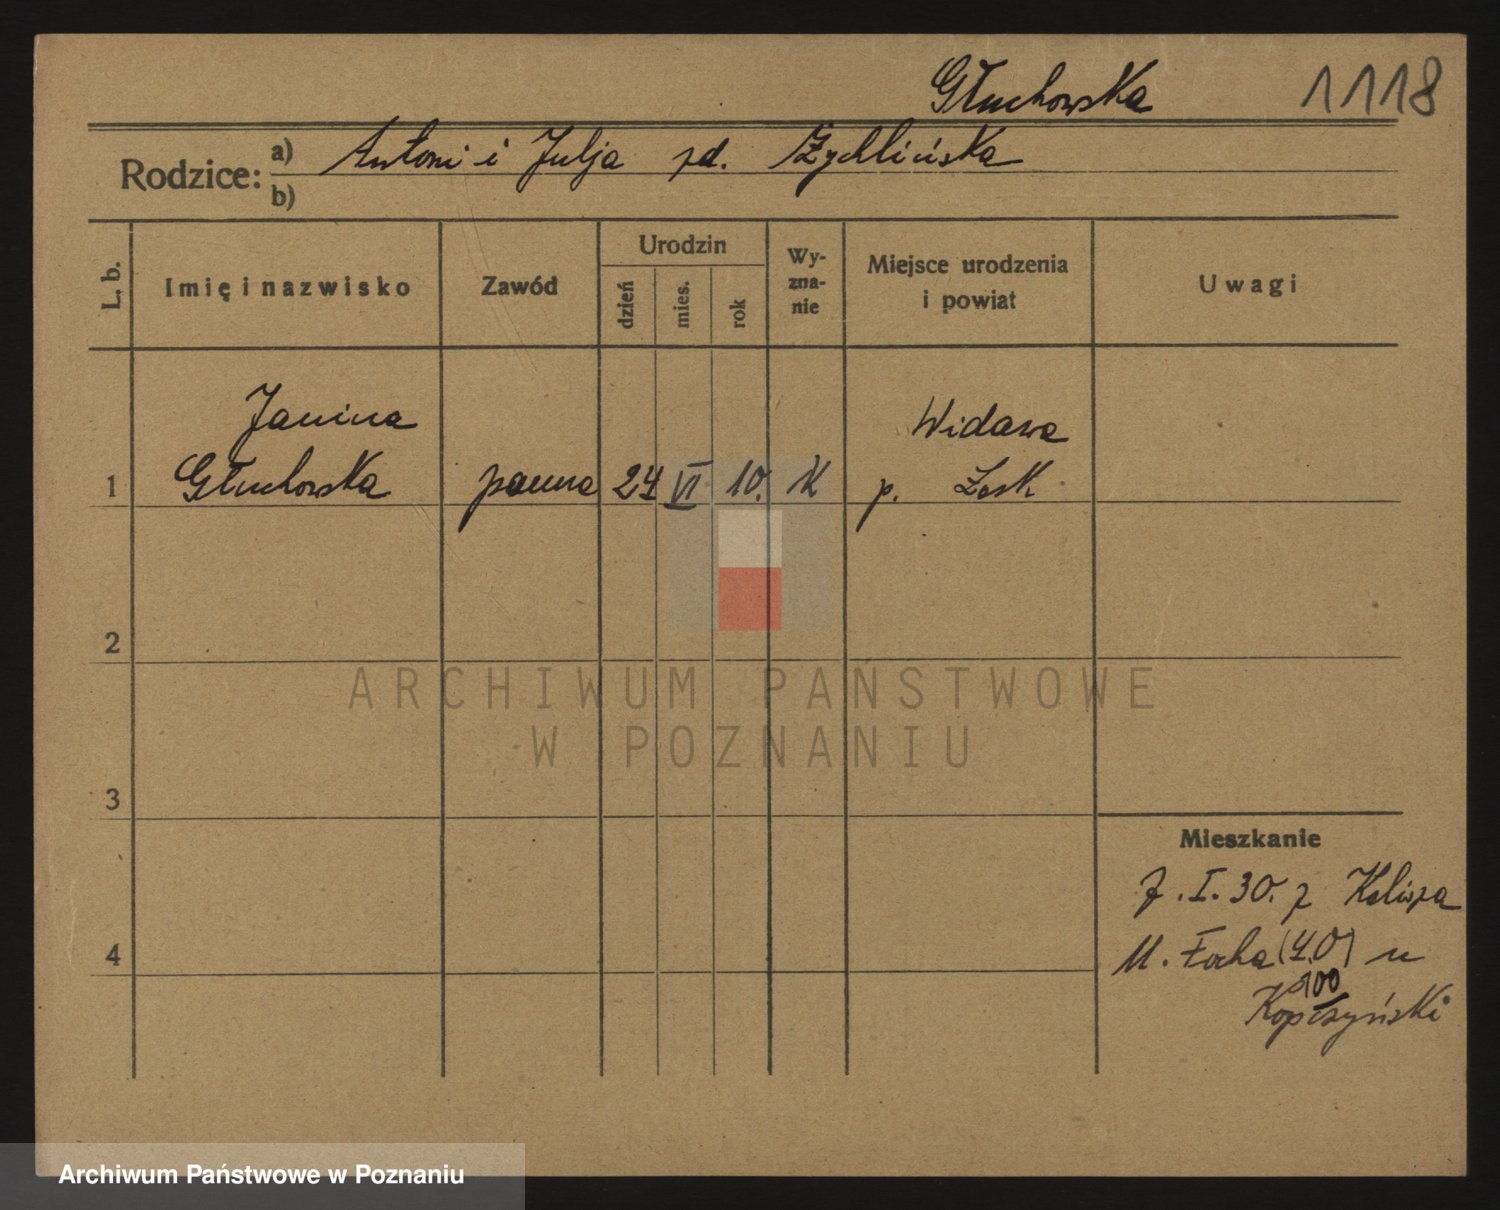 Głuchowska 1118
Rodzice: a) Antoni i Julja zd. Żychlińska
b)
L. b. Imię i nazwisko Zawód Urodzin dzień mies. rok Wy-zna-nie Miejsce urodzenia i powiat Uwagi
Janina Widawa
1 Głuchowska panna 24 VI 10. K p. Łask
2
3
4
ARCHIWUM PAŃSTWOWE
W POZNANIU
Mieszkanie
7.I.30. z Kalisza
M. Focha (4.0) u
100
Archiwum Państwowe w Poznaniu